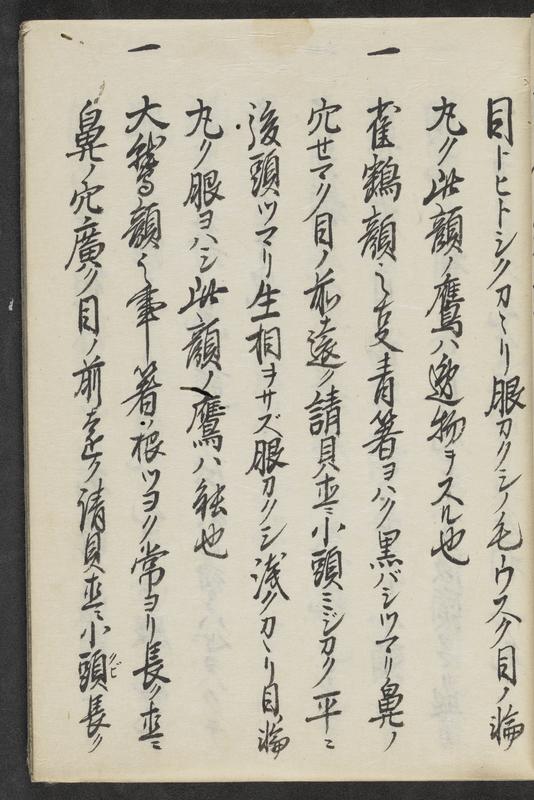 目トヒトシクカヽリ眼カクシノ毛ウスク目ノ輪
丸ク此顔ノ鷹ハ逸物ヲスル也
一 雀鶴顔之事青箸ヨハク黒バシツマリ鼻ノ
穴セマク目ノ前遠ク請貝並ニ小頭ミジカク平ニ
後頭ツマリ生相ヲサズ眼カクシ浅クカヽリ目輪
丸ク眼ヨハシ此顔ノ鷹ハ鈍也
一 大鷲顔之事箸ノ根ツヨク常ヨリ長ク並ニ
鼻ノ穴廣ク目ノ前近ク請貝並ニ小頭クビ長ク